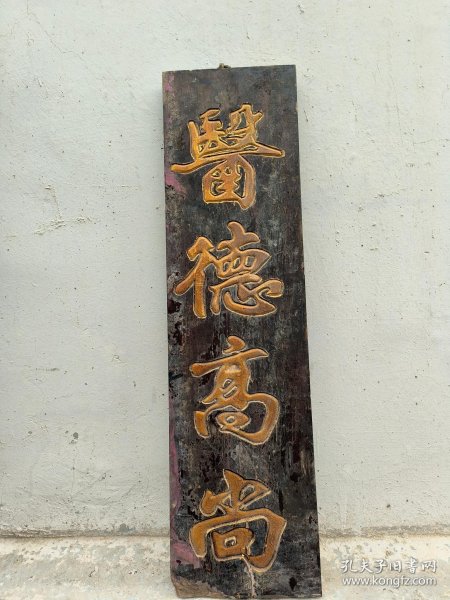 醫德高尚
孔夫子旧书网
www.kongfz.com